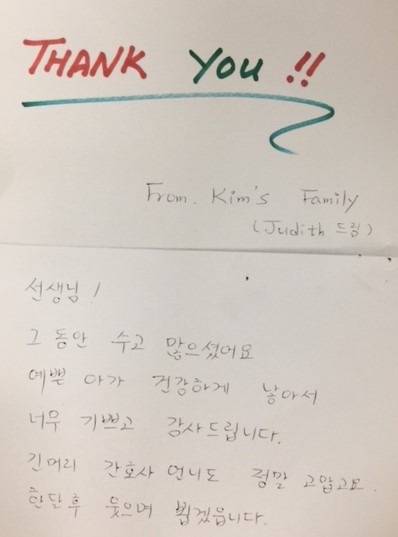 THANK YOU !!
From. Kim's Family
(Judith 드림)
선생님!
그 동안 수고 많으셨어요
예쁜 아가 건강하게 낳아서
너무 기쁘고 감사드립니다.
긴머리 간호사 언니도 정말 고맙고요.
한달후 웃으며 뵙겠읍니다.